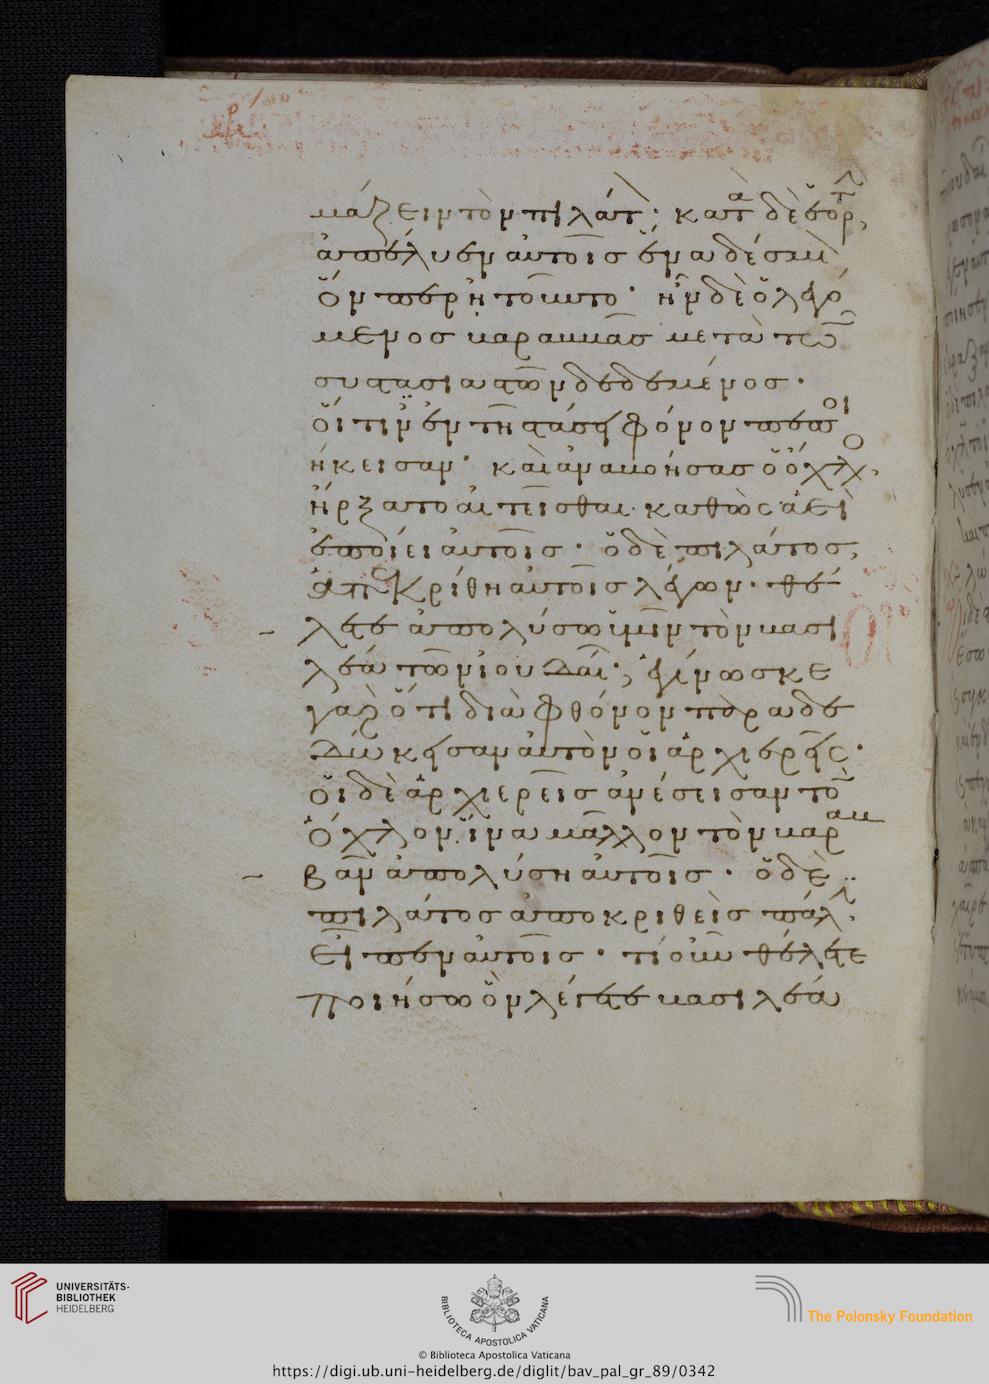 μάζειν τὸν πιλάτ· κατὰ δὲ ἑορτ
ἀπέλυεν αὐτοῖς ἕνα δέσμι
ὃν περ ἠτοῦντο· ἦν δὲ ὁ λεγό
μενος βαραββᾶς μετὰ τῶ
συστασιαστῶν δεδεμένος·
οἵτινες ἐν τῆ στάσει φόνον πεποι
ήκεισαν· καὶ ἀναβοήσας ὁ ὄχλο
ἤρξατο αἰτεῖσθαι καθὼς ἀεὶ
ἐποίει αὐτοῖς· ὁ δὲ πιλάτος,
ἀπεκρίθη αὐτοῖς λέγων· θέ
λετε ἀπολύσω ὑμῖν τὸν βασι
λέα τῶν ἰουδαί; ἐγίνωσκε
γὰρ ὅτι διὰ φθόνον παραδε
δώκεισαν αὐτὸν οἱ ἀρχιερεῖς·
οἱ δὲ ἀρχιερεῖς ἀνέσεισαν τὸ
ὄχλον ἵνα μᾶλλον τὸν βαραβ
βᾶν ἀπολύση αὐτοῖς· ὁ δὲ
πιλάτος ἀποκριθεὶς πάλ
εἶπεν αὐτοῖς· τί οὖν θέλετε
ποιήσω ὃν λέγετε βασιλέα
UNIVERSITÄTS-
BIBLIOTHEK
HEIDELBERG
BIBLIOTECA APOSTOLICA VATICANA
The Polonsky Foundation
© Biblioteca Apostolica Vaticana
https://digi.ub.uni-heidelberg.de/diglit/bav_pal_gr_89/0342